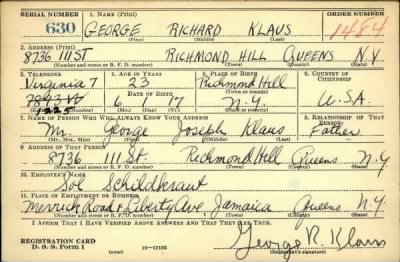 SERIAL NUMBER 1. NAME (Print) ORDER NUMBER
630 GEORGE RICHARD KLAUS 1484
(First) (Middle) (Last)
2. ADDRESS (Print)
8736 111 ST RICHMOND HILL QUEENS N.Y
(Number and street or R. F. D. number) (Town) (County) (State)
3. TELEPHONE 4. AGE IN YEARS 5. PLACE OF BIRTH 6. COUNTRY OF CITIZENSHIP
Virginia 7 23 Richmond Hill
DATE OF BIRTH
6 17 N.Y. U.S.A.
7. NAME OF PERSON WHO WILL ALWAYS KNOW YOUR ADDRESS 8. RELATIONSHIP OF THAT PERSON
Mr. George Joseph Klaus Father
(Mr., Mrs., Miss) (First) (Middle) (Last)
9. ADDRESS OF THAT PERSON
8736 111 St. Richmond Hill Queens N.Y
(Number and street or R. F. D. number) (Town) (County) (State)
10. EMPLOYER'S NAME
Sol Schildkraut
11. PLACE OF EMPLOYMENT OR BUSINESS
Merrick Road & Liberty Ave, Jamaica Queens N.Y.
(Number and street or R. F. D. number) (Town) (County) (State)
I AFFIRM THAT I HAVE VERIFIED ABOVE ANSWERS AND THAT THEY ARE TRUE.
REGISTRATION CARD
D. S. S. Form 1 (over) George R. Klaus
(Registrant's signature)